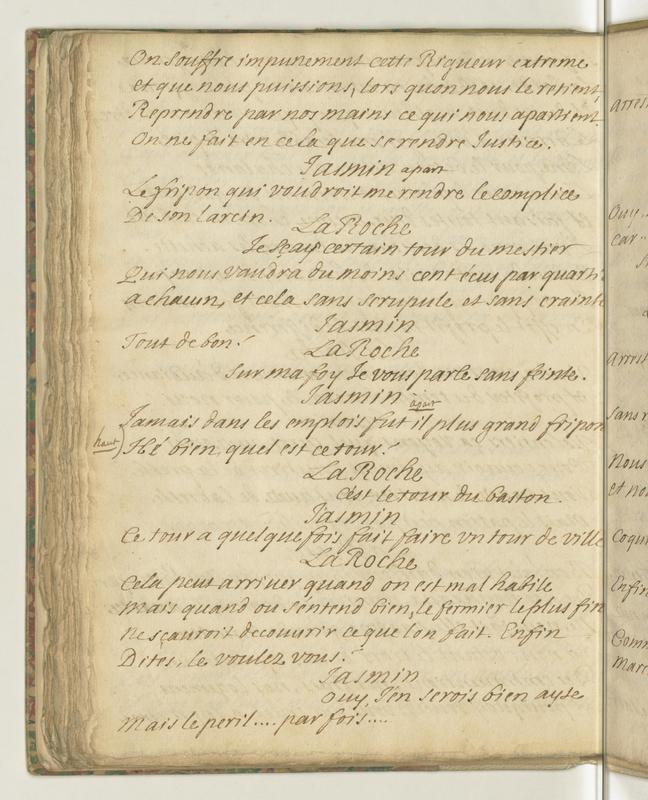 On souffre impunement cette Rigueur extreme
et que nous puissions, lors quon nous le retient
Reprendre par nos mains ce qui nous apartient.
On ne fait en cela que se rendre Justice.
Jasmin apart
Le fripon qui voudroit me rendre le complice
De son larcin.
La Roche
Je sçay certain tour du mestier
Qui nous vaudra du moins cent écus par quarti
a chacun, et cela sans scrupule et sans crainte
Jasmin
Tout de bon?
La Roche
Sur ma foy Je vous parle sans feinte.
Jasmin apart
Jamais dans les emplois fut il plus grand fripon
haut) Hé bien, quel est ce tour?
La Roche
c'est le tour du baston.
Jasmin
Ce tour a quelque fois fait faire vn tour de ville
La Roche
Cela peut arriuer quand on est mal habile
Mais quand on s'entend bien, le fermier le plus fin
ne sçauroit decouurir ce que l'on fait. Enfin
Dites, le voulez vous?
Jasmin
Ouy, J'en serois bien ayse
Mais le peril.... par fois....
arres
Ouy
car..
L
arrest
Sans
Nous
et no
Coqui
Enfin
Comm
Marc